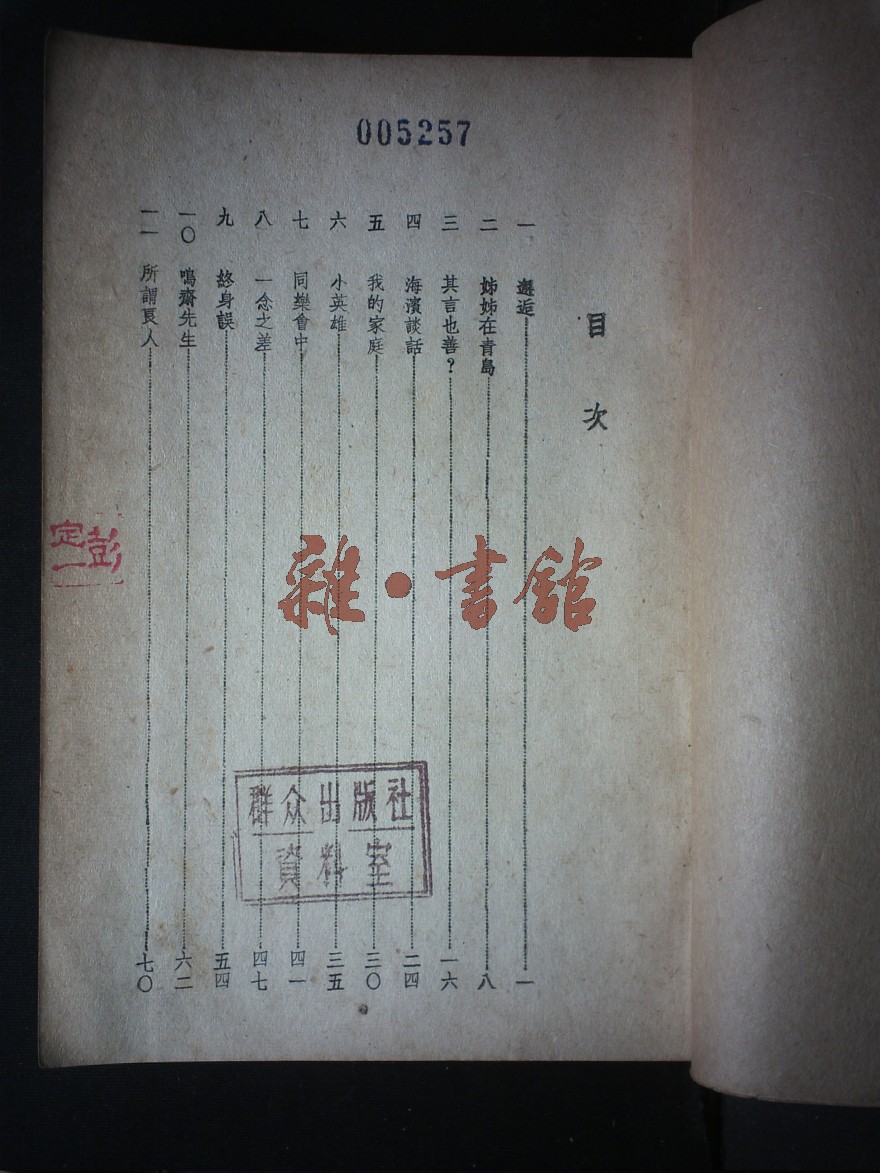 005257
目次
一 邂逅 一
二 姊姊在青島 八
三 其言也善？ 一六
四 海濱談話 二四
五 我的家庭 三〇
六 小英雄 三五
七 同樂會中 四一
八 一念之差 四七
九 終身誤 五四
一〇 鳴齋先生 六二
一一 所謂良人 七〇
彭定一
雜·書館
群众出版社
資料室